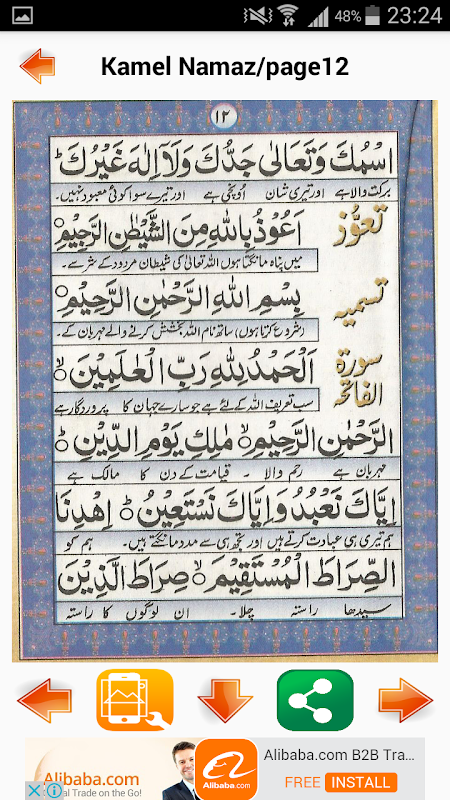 48% 23:24
Kamel Namaz/page12
١٢
اسْمُكَ وَتَعَالٰى جَدُّكَ وَلَآ اِلٰهَ غَيْرُكَ ؕ
برکت والا ہے اور تیری شان اُونچی ہے اور تیرے سوا کوئی معبود نہیں۔
تعوُّذ
اَعُوْذُ بِاللهِ مِنَ الشَّيْطٰنِ الرَّجِيْمِ
میں پناہ مانگتا ہوں اللہ تعالیٰ کی شیطان مردود کے شر سے۔
تسمیہ
بِسْمِ اللهِ الرَّحْمٰنِ الرَّحِيْمِ
(شروع کرتا ہوں) ساتھ نام اللہ بخشش کرنے والے مہربان کے۔
سورۃ الفاتحہ
اَلْحَمْدُ لِلّٰهِ رَبِّ الْعٰلَمِيْنَ ۙ
سب تعریف اللہ کے لئے ہے جو سارے جہان کا پروردگار ہے
الرَّحْمٰنِ الرَّحِيْمِ ۙ مٰلِكِ يَوْمِ الدِّيْنِ ؕ
مہربان ہے رحم والا ۔ قیامت کے دن کا مالک ہے
اِيَّاكَ نَعْبُدُ وَاِيَّاكَ نَسْتَعِيْنُ ؕ اِهْدِنَا
ہم تیری ہی عبادت کرتے ہیں اور تجھ ہی سے مدد مانگتے ہیں۔ ہم کو
الصِّرَاطَ الْمُسْتَقِيْمَ ۙ صِرَاطَ الَّذِيْنَ
سیدھا راستہ چلا۔ ان لوگوں کا راستہ
Alibaba.com
al Trade on the Go!
Alibaba.com
Alibaba.com B2B Tra...
FREE INSTALL